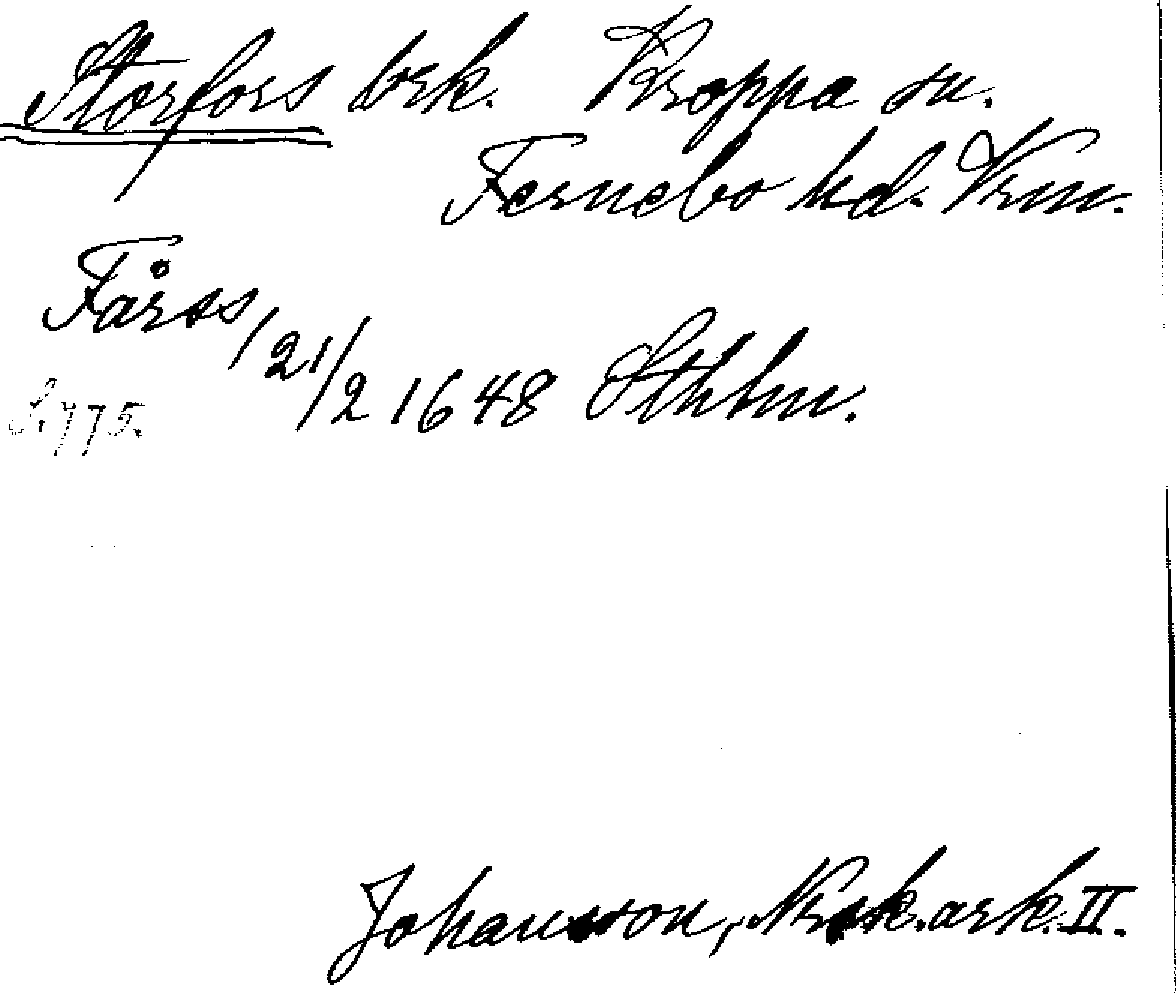 Storfors brk. Kroppa sn.
Fernebo hd. Vrm.
Fårss
/21/2 1648 Sthlm.
S. 775.
Johansson, Nrsk.ark. II.